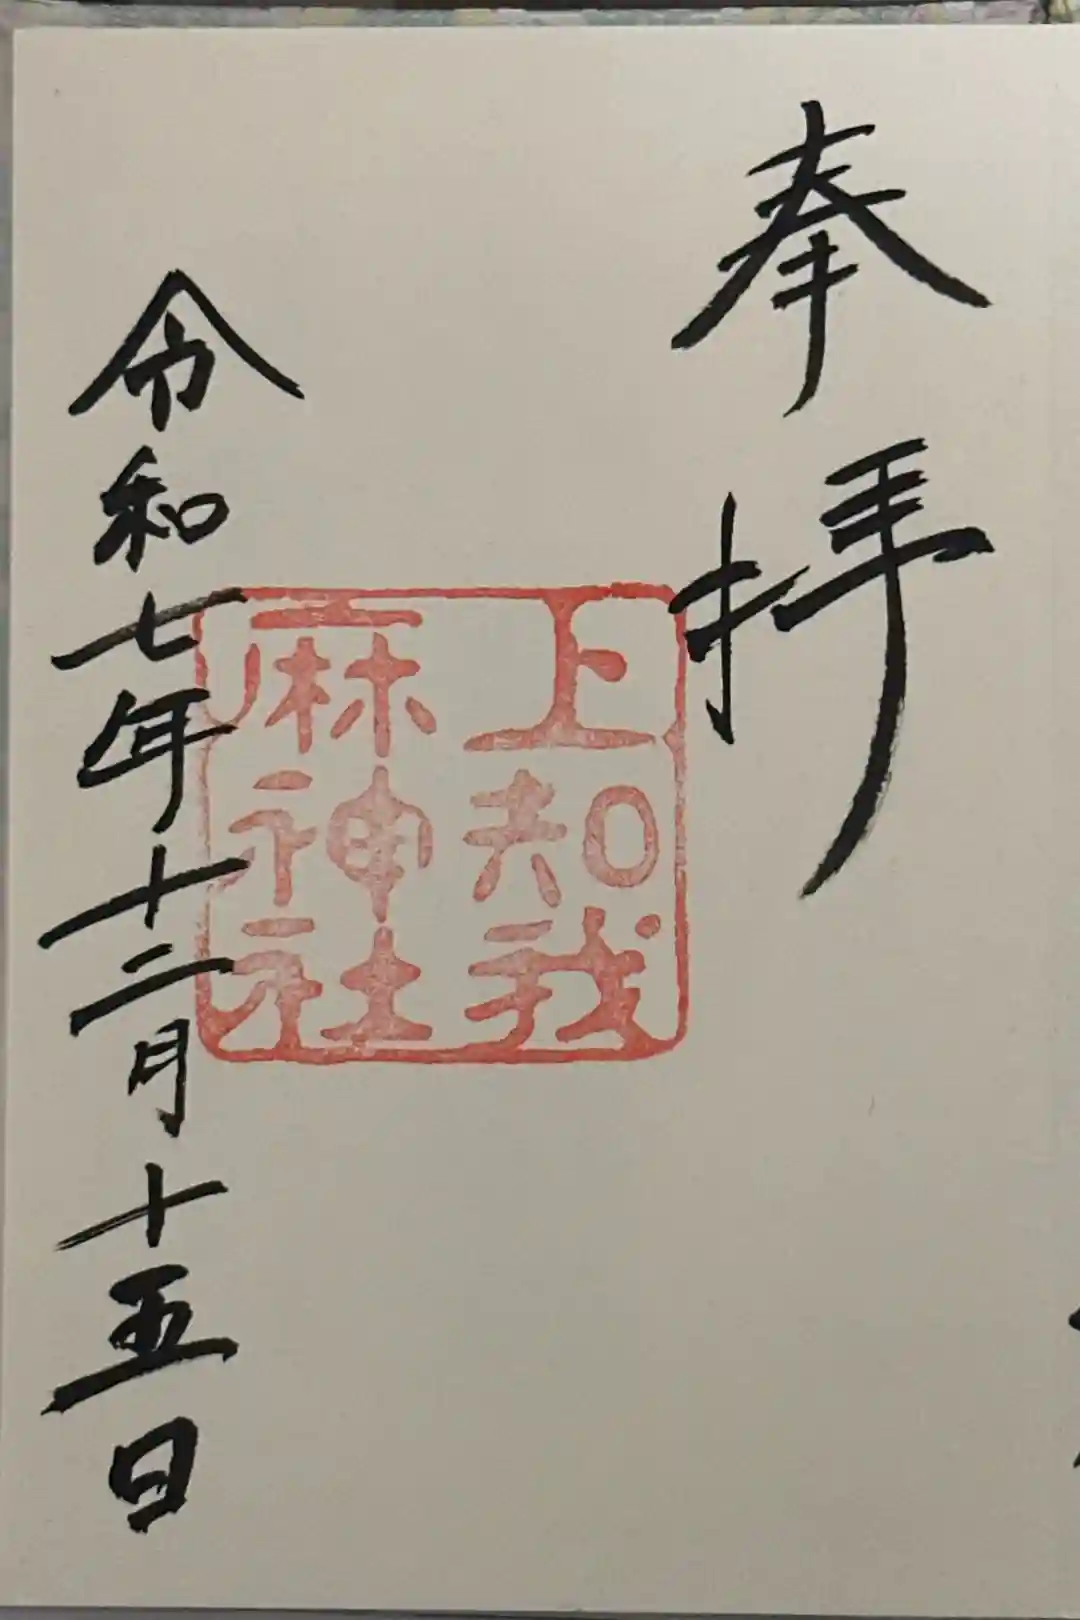 奉拝
上知我
麻神社
令和七年十二月十五日